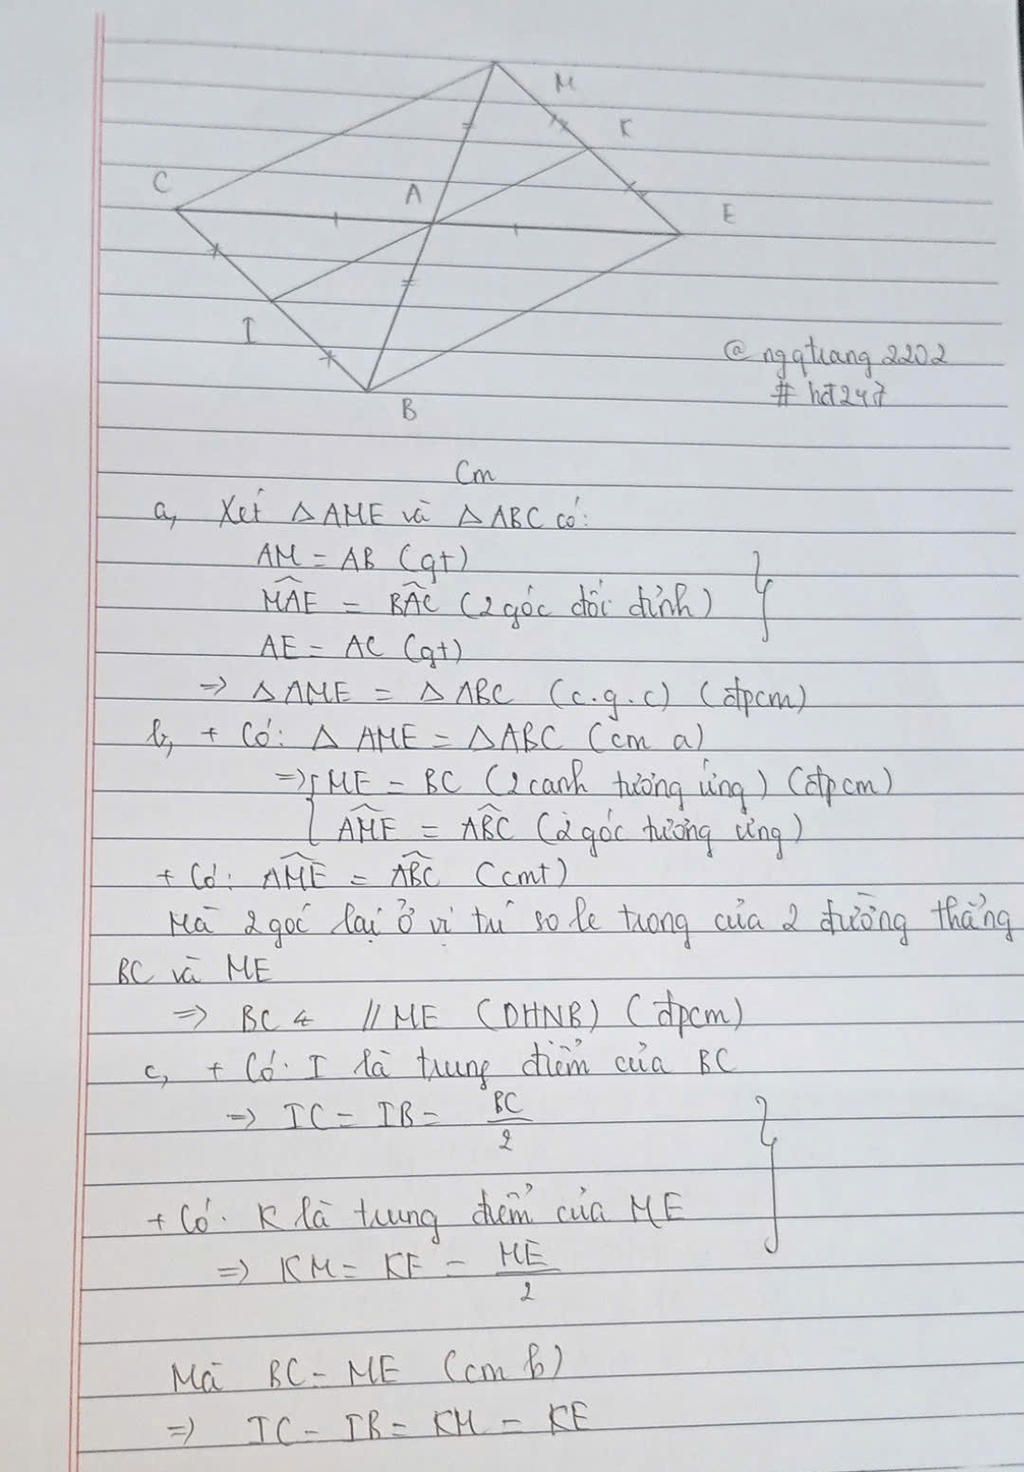 M
K
C
A
E
I
B
@ngqtrang2202
# hđ247
Cm
a, Xét △AME và △ABC có:
AM = AB (gt)
MAE = BAC (2 góc đối đỉnh)
AE = AC (gt)
=> △AME = △ABC (c.g.c) (đpcm)
b, + Có: △AME = △ABC (cm a)
=> ME = BC (2 cạnh tương ứng) (đpcm)
AME = ABC (2 góc tương ứng)
+ Có: AME = ABC (cmt)
Mà 2 góc lại ở vị trí so le trong của 2 đường thẳng
BC và ME
=> BC // ME (DHNB) (đpcm)
c, + Có: I là trung điểm của BC
=> IC = IB = BC/2
+ Có: K là trung điểm của ME
=> KM = KE = ME/2
Mà BC = ME (cm b)
=> IC = IB = KM = KE